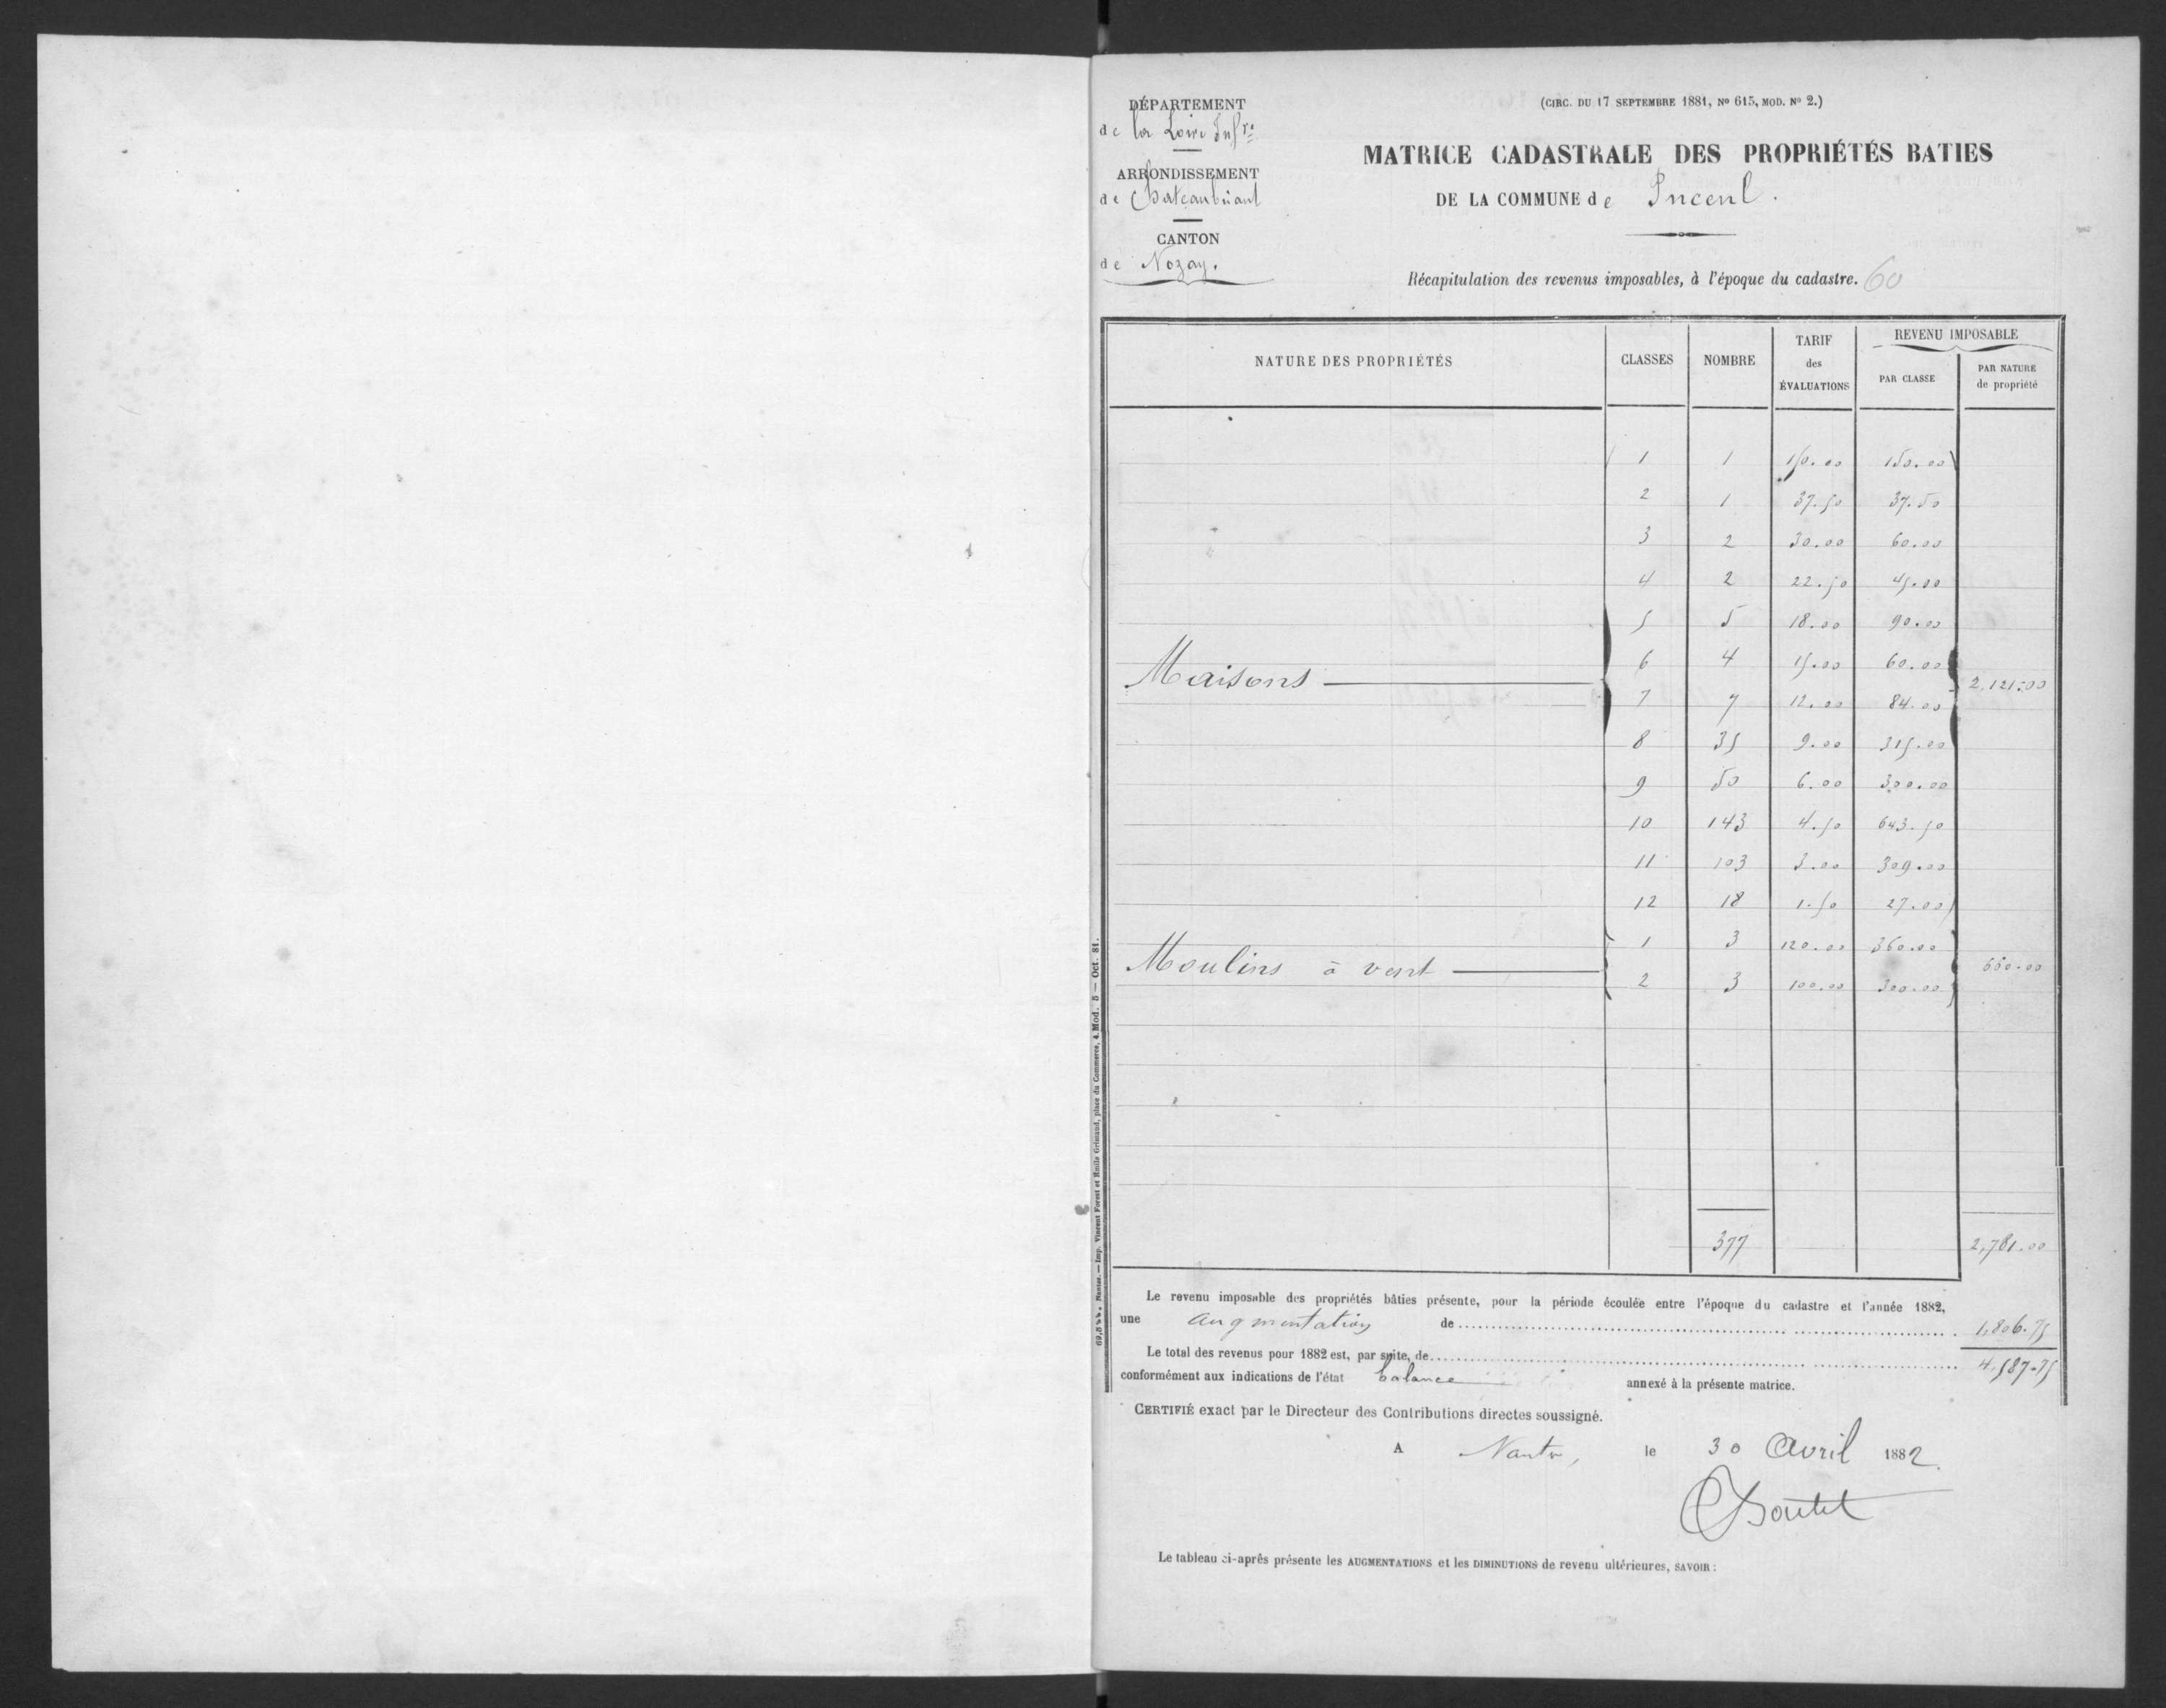 DÉPARTEMENT
de la Loire Infre
ARRONDISSEMENT
de Chateaubriant
CANTON
de Nozay.
(CIRC. DU 17 SEPTEMBRE 1881, No 615, MOD. No 2.)
MATRICE CADASTRALE DES PROPRIÉTÉS BATIES
DE LA COMMUNE de Puceul.
Récapitulation des revenus imposables, à l'époque du cadastre. 60
NATURE DES PROPRIÉTÉS CLASSES NOMBRE TARIF des ÉVALUATIONS REVENU IMPOSABLE
PAR CLASSE PAR NATURE de propriété
1 1 150.00 150.00
2 1 37.50 37.50
3 2 30.00 60.00
4 2 22.50 45.00
5 5 18.00 90.00
6 4 15.00 60.00
Maisons 2,121.00
7 7 12.00 84.00
8 35 9.00 315.00
9 50 6.00 300.00
10 143 4.50 643.50
11 103 3.00 309.00
12 18 1.50 27.00
1 3 120.00 360.00
Moulins à vent 660.00
2 3 100.00 300.00
377 2,781.00
Le revenu imposable des propriétés bâties présente, pour la période écoulée entre l'époque du cadastre et l'année 1882,
une augmentation de 1,806.75
Le total des revenus pour 1882 est, par suite, de 4,587.75
conformément aux indications de l'état balance annexé à la présente matrice.
CERTIFIÉ exact par le Directeur des Contributions directes soussigné.
A Nantes, le 30 Avril 1882.
Le tableau ci-après présente les AUGMENTATIONS et les DIMINUTIONS de revenu ultérieures, SAVOIR :
Nantes. — Imp. Vincent Forest et Emile Grimaud, place du Commerce, 4. Mod. 5 — Oct. 81.